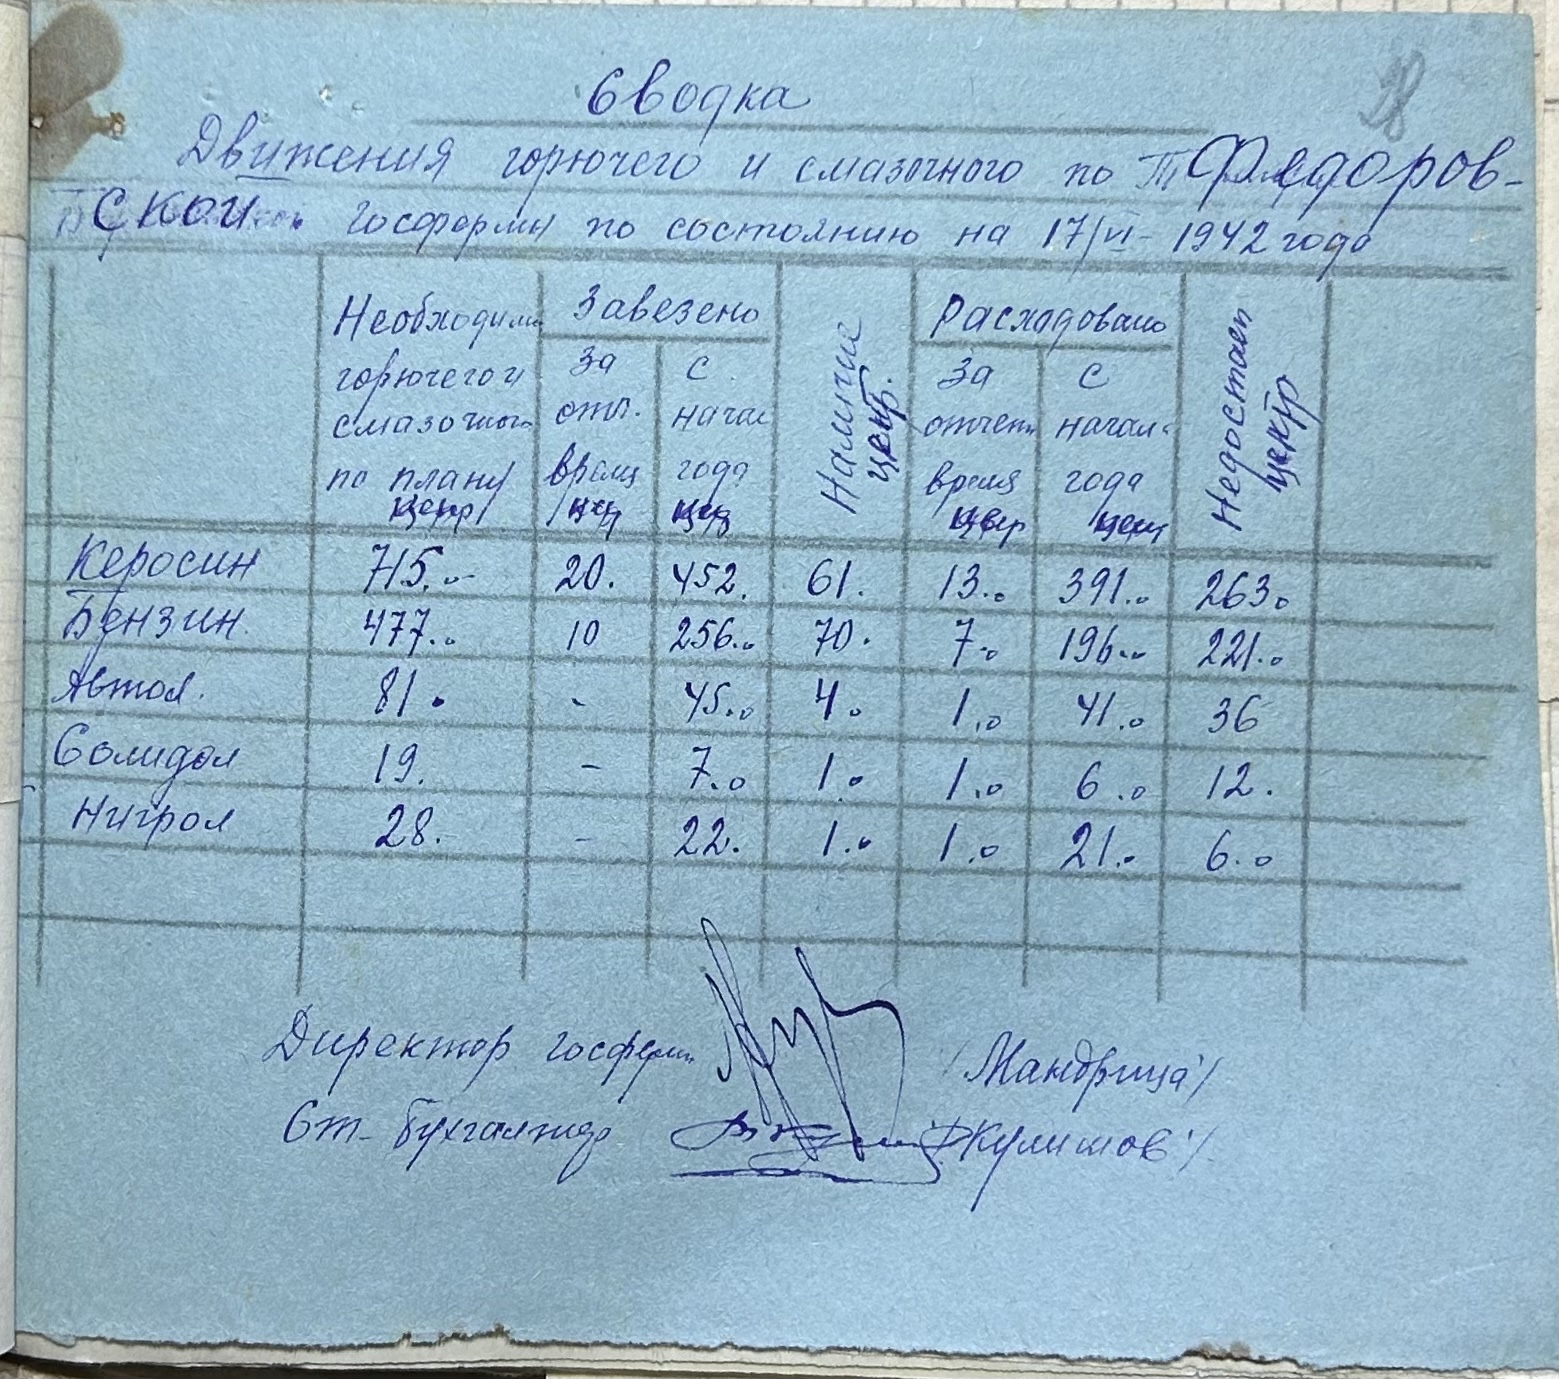 28
Сводка
Движения горючего и смазочного по Федоров-
ской госферми по состоянию на 17/VI - 1942 года
Необходимо горючего и смазочного по плану центр
Завезено
За отч. время цен
С начал года цен
Наличие центр.
Расходовано
За отчетн время центр
С начал. года цент
Недостает центр
Керосин 715.- 20. 452. 61. 13.0 391.0 263.0
Бензин 477.0 10 256.0 70. 7.0 196.0 221.0
Автол. 81. - 45.0 4.0 1.0 41.0 36
Солидол 19. - 7.0 1.0 1.0 6.0 12.
Нигрол 28. - 22. 1.0 1.0 21.0 6.0
Директор госферми /Мандрица/
Ст- бухгалтер /Кулишов/